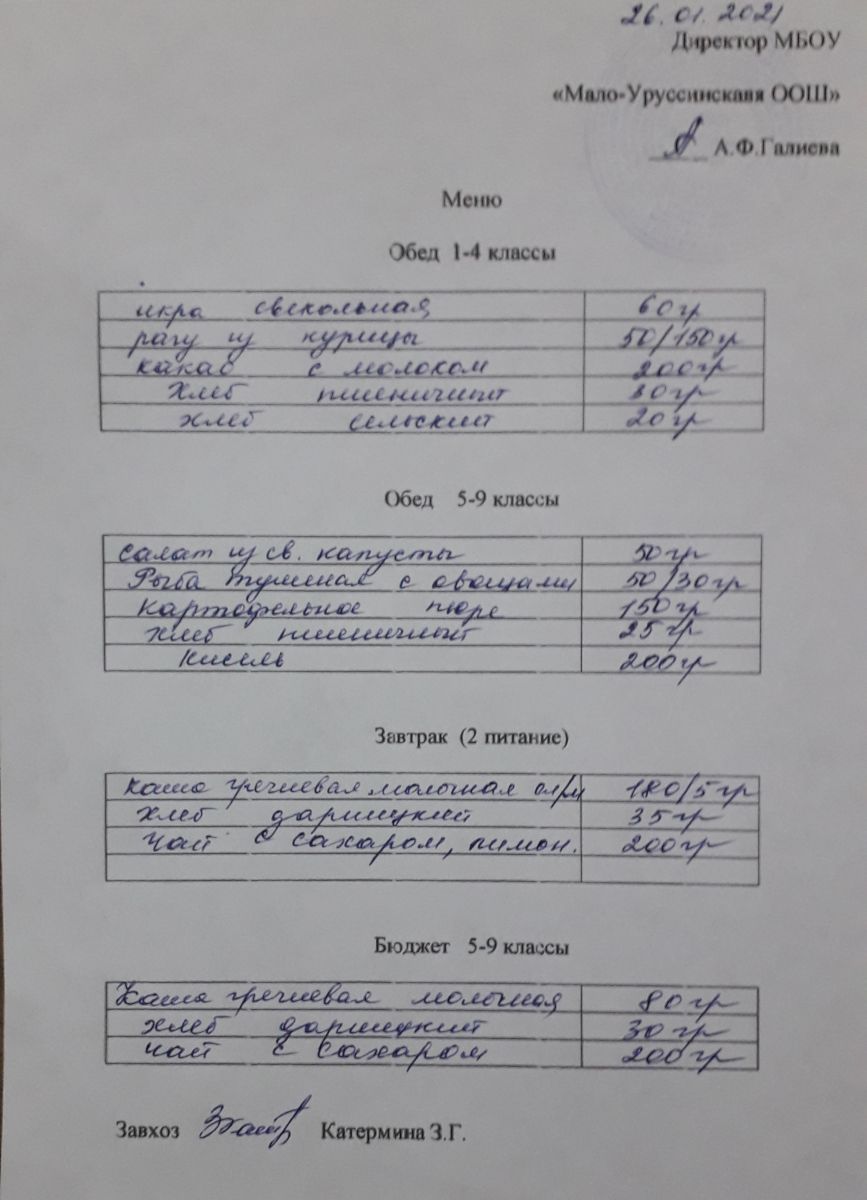 26.01.2021
Директор МБОУ
«Мало-Уруссинскавя ООШ»
А.Ф.Галиева
Меню
Обед 1-4 классы
икра свекольная 60гр
рагу из курицы 50/150гр
какао с молоком 200гр
Хлеб пшеничный 30гр
хлеб сельский 20гр
Обед 5-9 классы
салат из св. капусты 50гр
Рыба тушеная с овощами 50/30гр
картофельное пюре 150гр
хлеб пшеничный 25гр
кисель 200гр
Завтрак (2 питание)
каша гречневая молочная сл/м 180/5гр
хлеб дарницкий 35гр
чай с сахаром, лимон. 200гр
Бюджет 5-9 классы
Каша гречневая молочная 80гр
хлеб дарницкий 30гр
чай с сахаром 200гр
Завхоз Катермина З.Г.